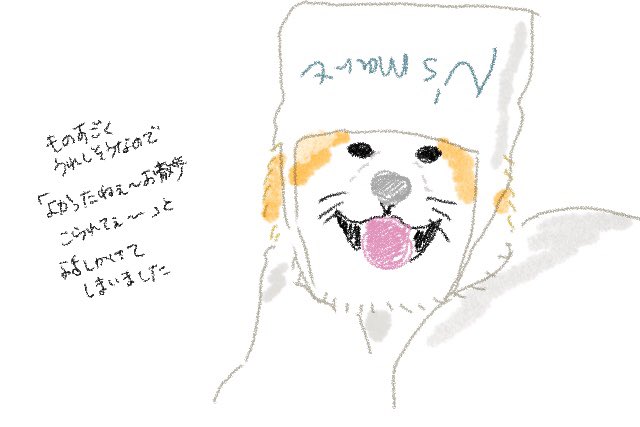 N's Mart
ものすごく
うれしそうなので
「よかったねぇ〜お散歩
こられてぇ〜」と
話しかけて
しまいました